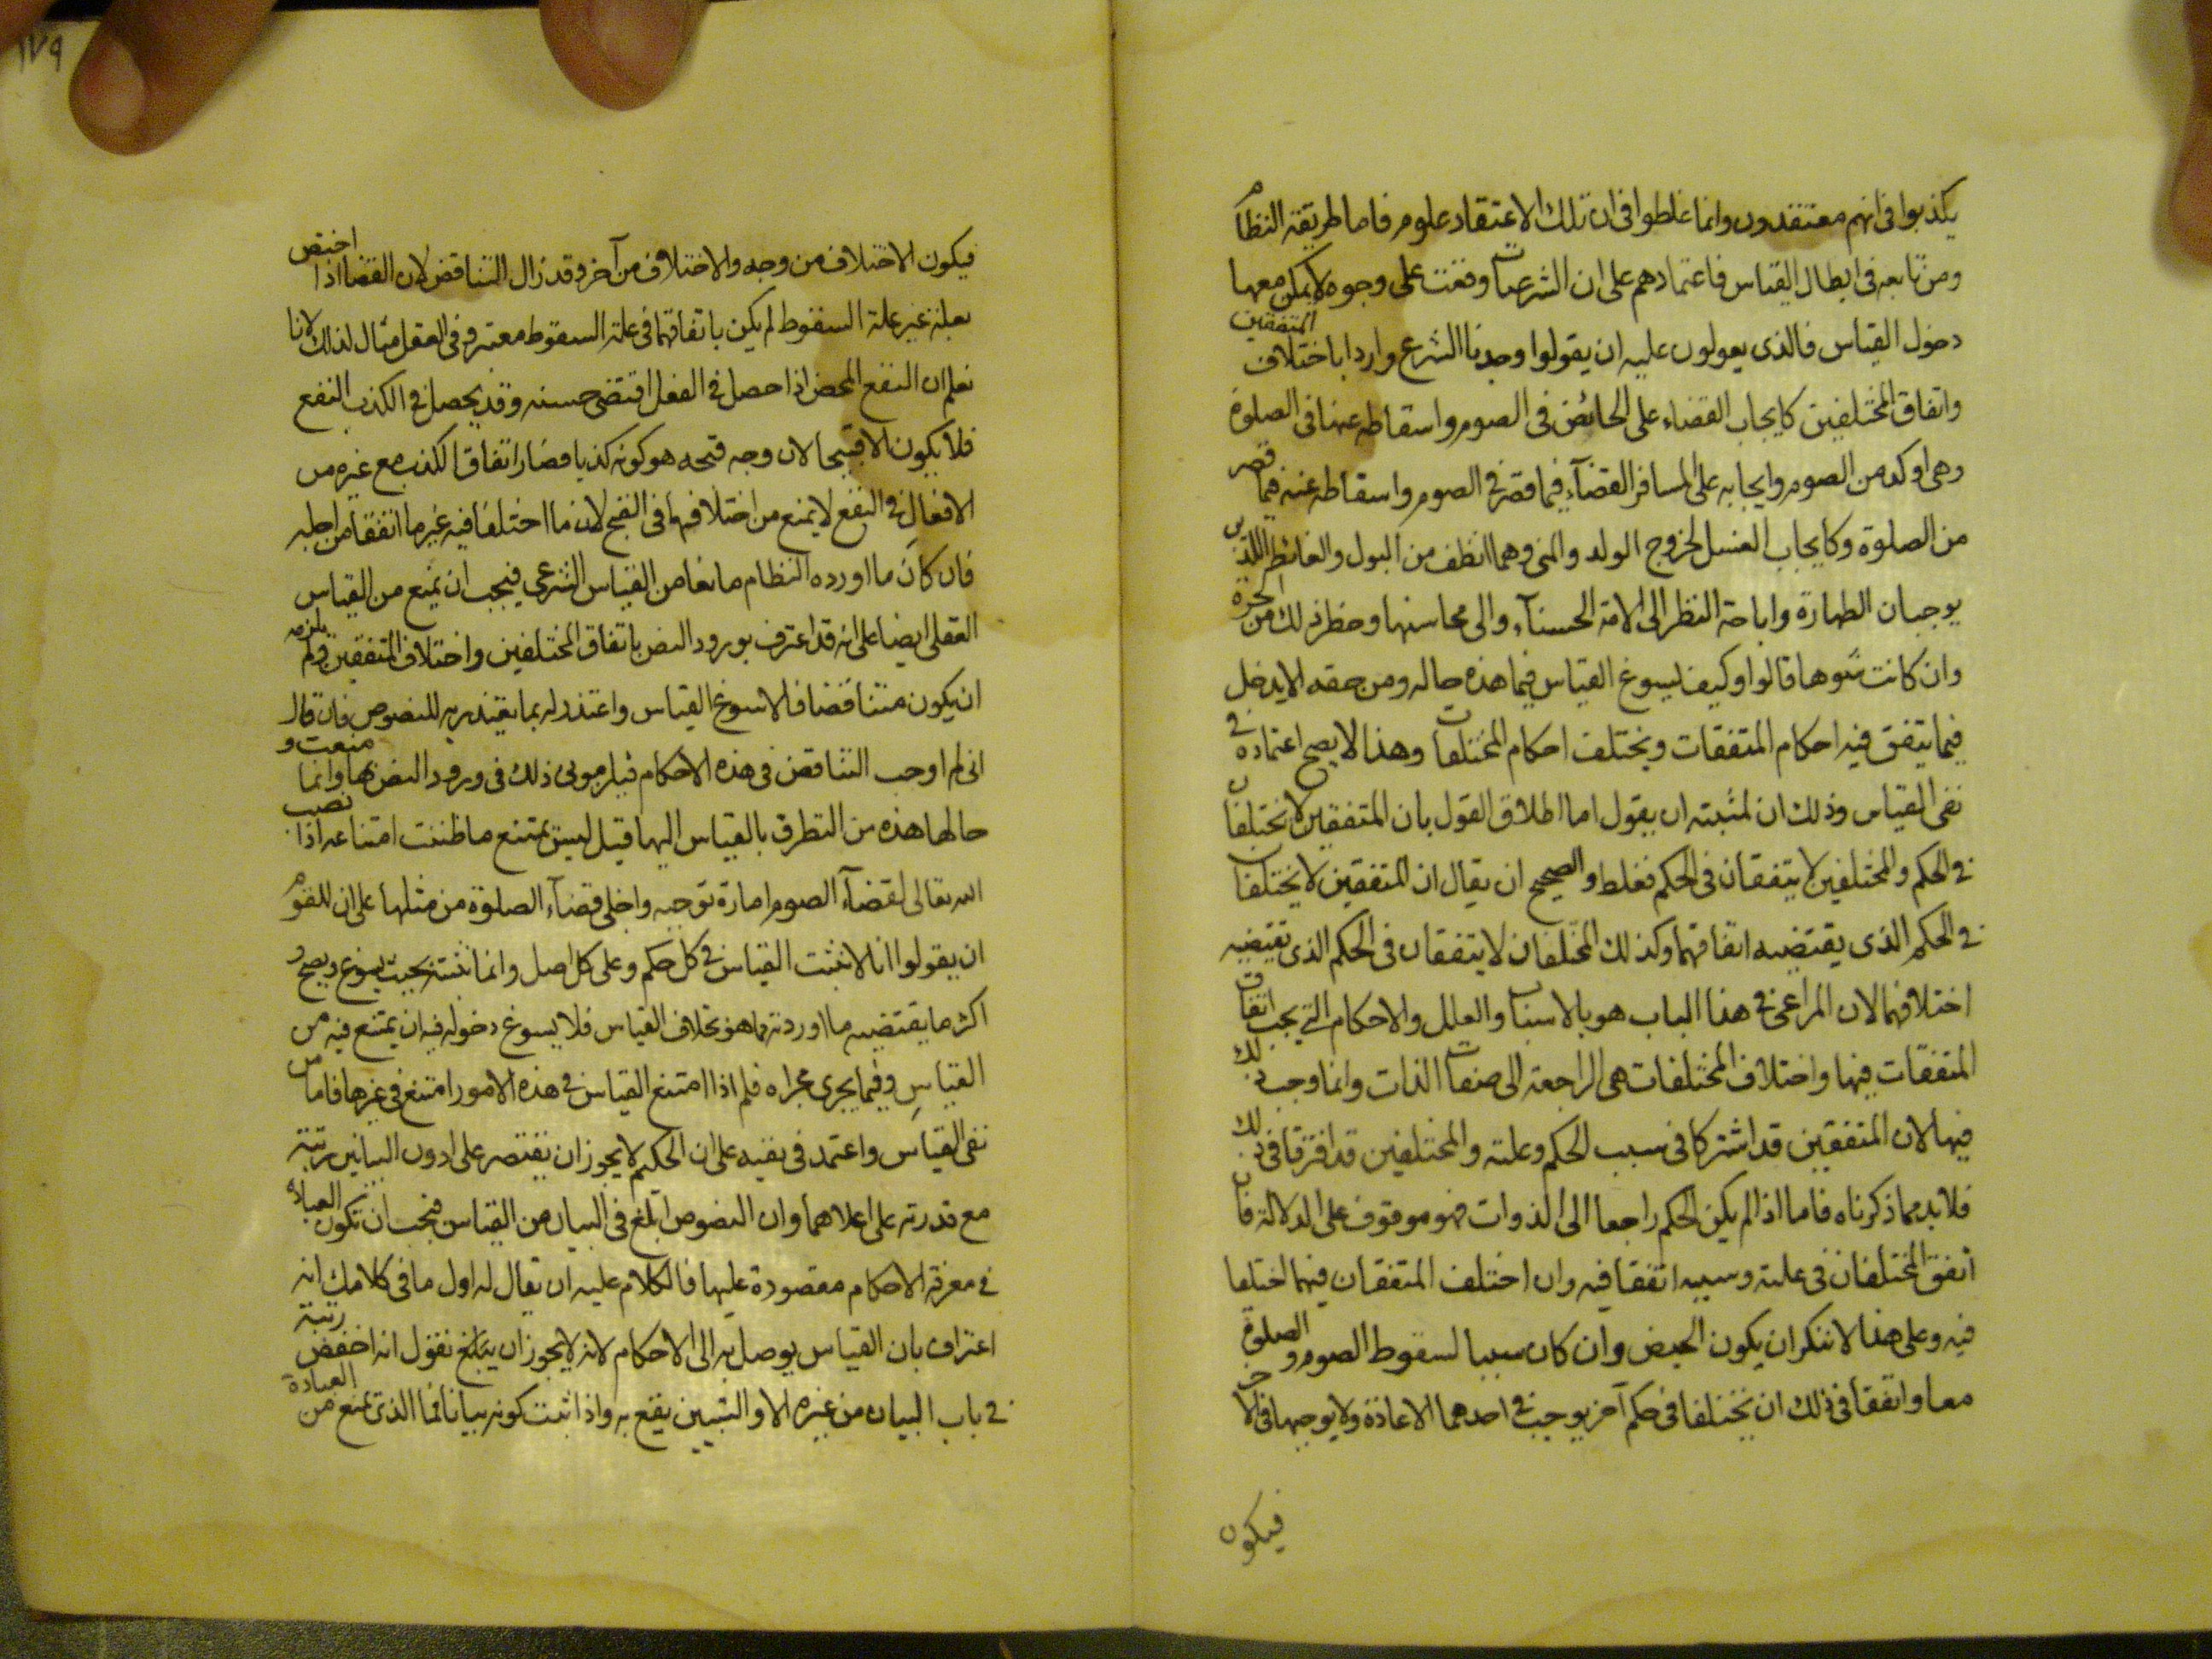 يكذبوا فى انهم معتقدون وانما غلطوا فى ان تلك الاعتقاد علوم فاما طريقة النظام
ومن تابعه فى ابطال القياس فاعتمادهم على ان الشرعيات وقعت على وجوه لا يمكن معها
دخول القياس فالذى يعولون عليه ان يقولوا وجدنا الشرع واردا باختلاف المتفقين
واتفاق المختلفين كايجاب القضاء على الحائض فى الصوم واسقاطه عنها فى الصلوة
وهى اوكد من الصوم وايجابه على المسافر القضآء فيما قصر فى الصوم واسقاطه عنه فيما قصر
من الصلوة وكايجاب الغسل لخروج الولد والمنى وهما انظف من البول والغائط اللذين
يوجبان الطهارة واباحة النظر الى الامة الحسنآء والى محاسنها وحظر ذلك من الحرة
وان كانت شوها قالوا وكيف يسوغ القياس فيما هذه حاله ومن حقه الا يدخل
فيما يتفق فيه احكام المتفقات ويختلف احكام المختلفات وهذا لا يصح اعتماده فى
نفى القياس وذلك ان لمثبته ان يقول اما اطلاق القول بان المتفقين لا يختلفان
فى الحكم والمختلفين لا يتفقان فى الحكم فغلط والصحيح ان يقال ان المتفقين لا يختلفان
فى الحكم الذى يقتضيه اتفاقهما وكذلك المختلفان لا يتفقان فى الحكم الذى تقتضيه
اختلافهما لان المراعى فى هذا الباب هو بالاسباب والعلل والاحكام التى يجب اتفاق
المتفقات فيها واختلاف المختلفات هى الراجعة الى صفات الذات وانما وجب ذلك
فيها لان المتفقين قد اشتركا فى سبب الحكم وعلته والمختلفين قد افترقا فى ذلك
فلا بد مما ذكرناه فاما اذا لم يكن الحكم راجعا الى الذوات فهو موقوف على الدلالة فان
اتفق المختلفان فى علته وسببه اتفقا فيه وان اختلف المتفقان فيهما اختلفا
فيه وعلى هذا لا ننكر ان يكون الحيض وان كان سببا لسقوط الصوم والصلوة
معا واتفقا فى ذلك ان يختلفا فى حكم آخر يوجب فى احدهما الاعادة ولا يوجبها فى الاخر
فيكون
١٧٩
فيكون الاختلاف من وجه والاختلاف من آخر وقد زال التناقض لان القضا اذا اختص
بعلة غير علة السقوط لم يكن باتفاقهما فى علة السقوط معتبر وفى العقل مثال لذلك لانا
نعلم ان النفع المحض اذا حصل فى الفعل اقتضى حسنه وقد يحصل فى الكذب النفع
فلا يكون الا قبيحا لان وجه قبحه هو كونه كذبا فصار اتفاق الكذب مع غيره من
الافعال فى النفع لا يمنع من اختلافهما فى القبح لان ما اختلفا فيه غير ما اتفقا من اجله
فان كان ما اورده النظام مانعا من القياس الشرعى فيجب ان يمنع من القياس
العقلى ايضا على انه قد اعترف بورود النص باتفاق المختلفين واختلاف المتفقين ولم يلزمه
ان يكون متناقضا فالا سوغ القياس واعتذر له بما يعتذر به للنصوص فان قال
انى لم اوجب التناقض فى هذه الاحكام فيلزمونى ذلك فى ورود النص بها وانما منعت و
حالها هذه من التطرق بالقياس اليها قيل ليس يمتنع ما ظننت امتناعه اذا نصب
الله تعالى لقضآء الصوم امارة توجبه واخلى قضآء الصلوة من مثلها على ان للقوم
ان يقولوا انا لا نثبت القياس فى كل حكم وعلى كل اصل وانما نثبته بحيث يسوغ ويصح و
اكثر ما يقتضيه ما اوردته مما هو بخلاف القياس فلا يسوغ دخوله فيه ان يمتنع فيه من
القياس وفيما يجرى مجراه فلم اذا امتنع القياس فى هذه الامور امتنع فى غيرها فاما من
نفى القياس واعتمد فى نفيه على ان الحكيم لا يجوز ان يقتصر على ادون البيانين رتبة
مع قدرته على اعلاهما وان النصوص ابلغ فى البيان من القياس فيجب ان تكون العبادة
فى معرفة الاحكام مقصورة عليها فالكلام عليه ان يقال له اول ما فى كلامك انه
اعتراف بان القياس يوصل به الى الاحكام لانه لا يجوز ان يبلغ نقول انه اخفض رتبة
فى باب البيان من غيره الا والتبيين يقع به واذا ثبت كونه بيانا فما الذى يمنع من العبادة